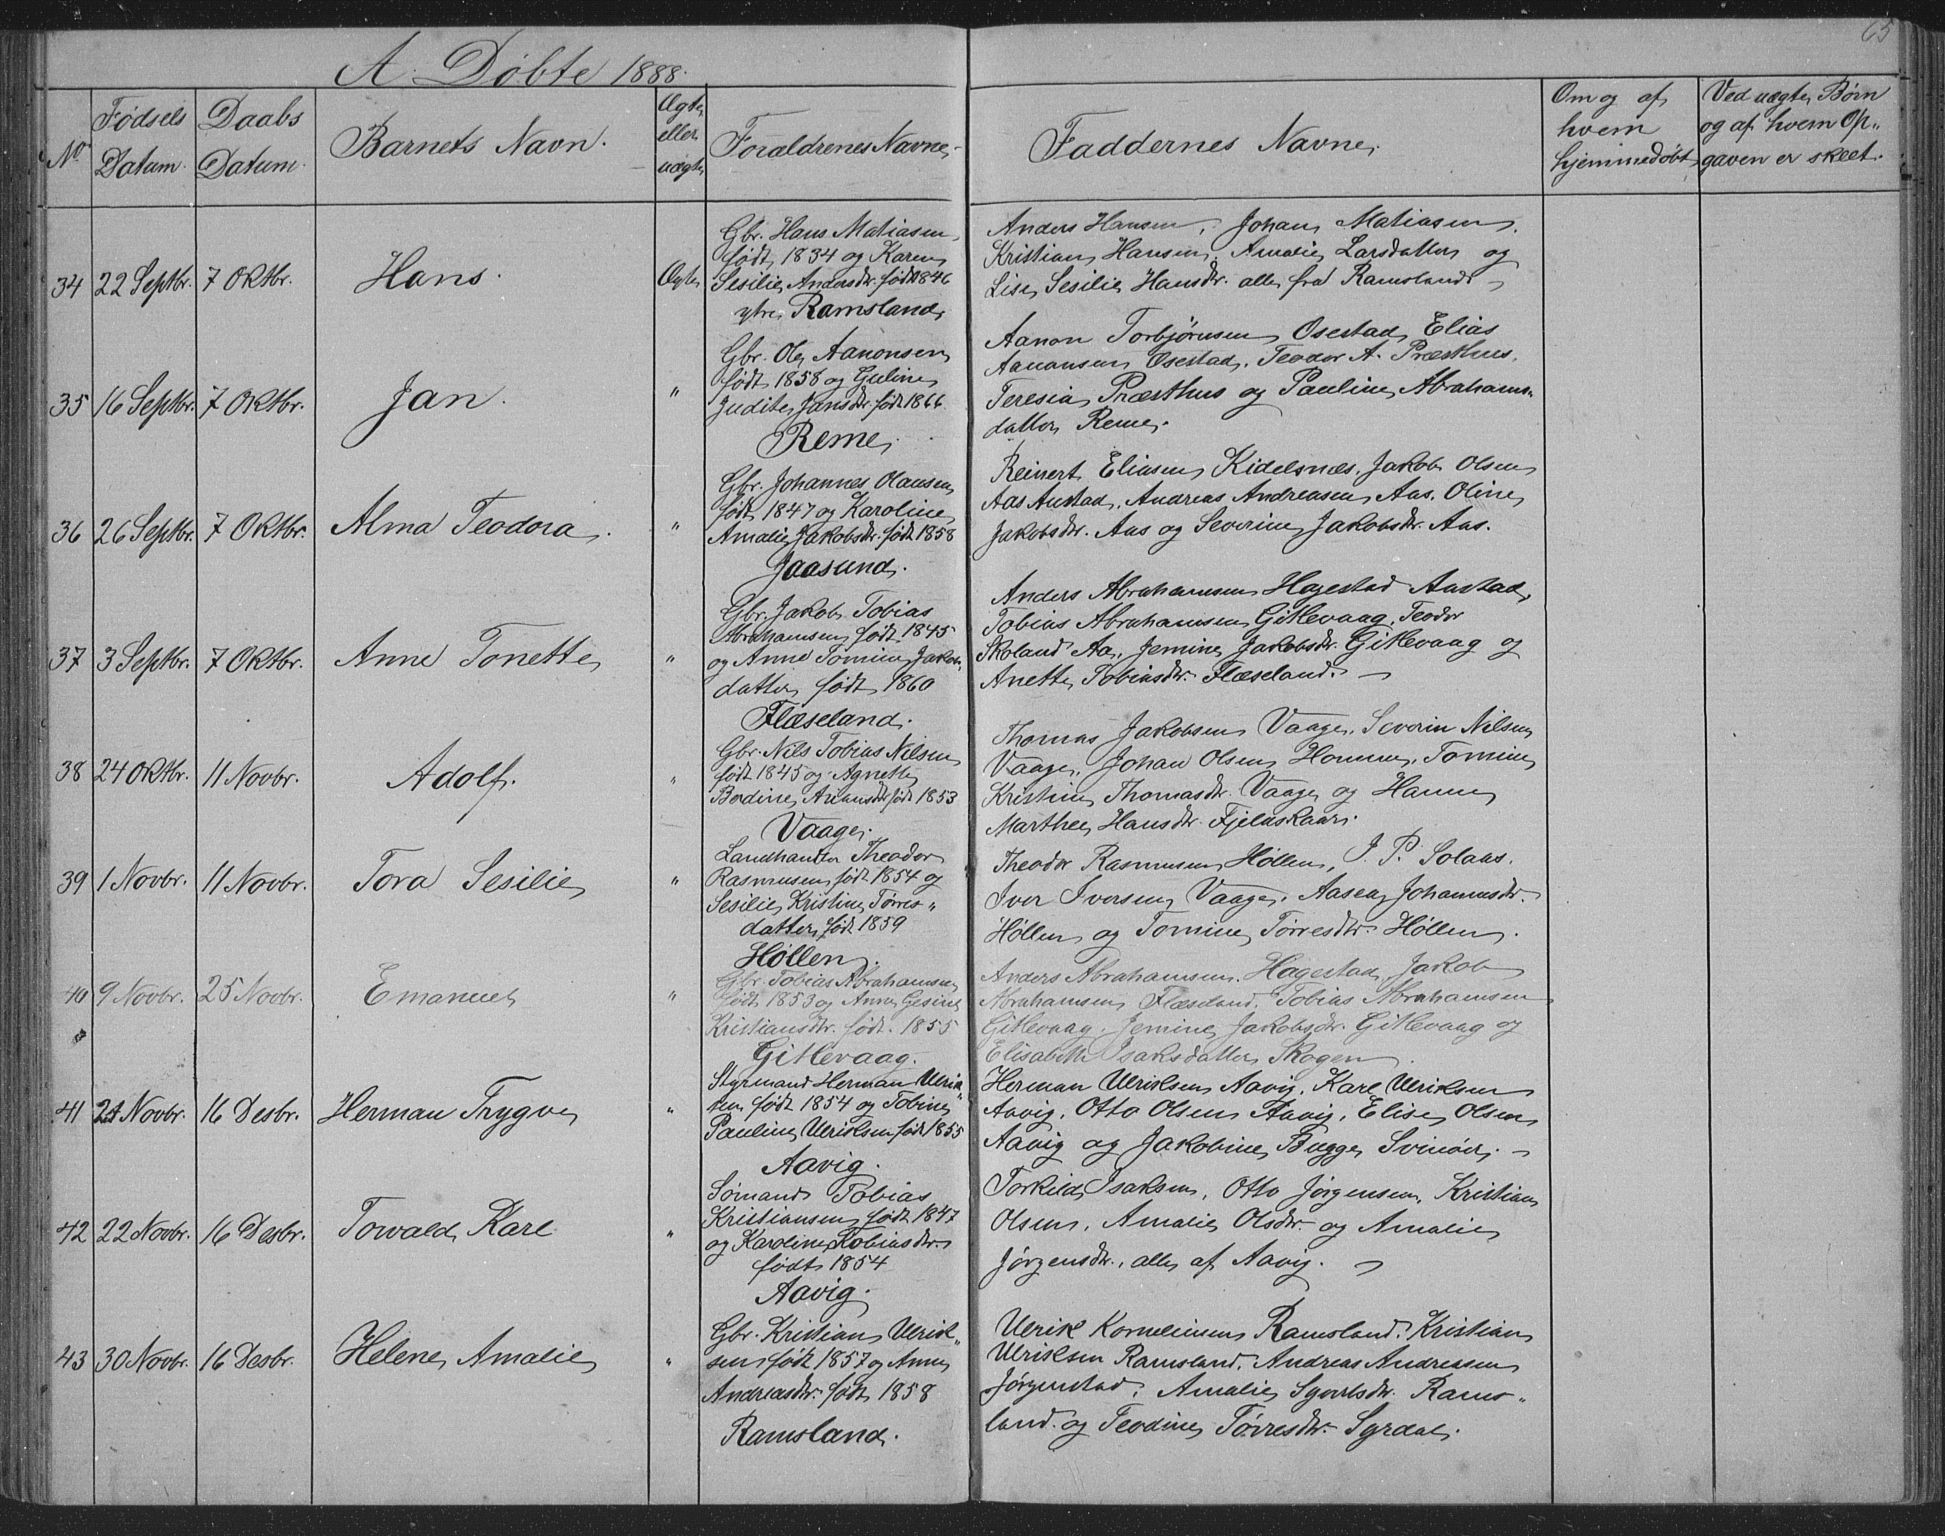 65
A. Döbte 1888.
No.
Fødsels Datum.
Daabs Datum.
Barnets Navn.
Ægte eller uægte
Foraldrenes Navne.
Faddernes Navne.
Om og af hvem hjemmedøbt
Ved uægte Børn og af hvem Opgaven er skeet.
34 22 Septbr. 7 Oktbr. Hans. Ægte
Gbr. Hans Matiasen
født 1834 og Karen
Sesilie Andersdtr. født 1846
ytre Ramsland
Anders Hansen, Johan Matiasen,
Kristian Hansen, Amalie Larsdatter og
Lise Sesilie Hansdtr. alle fra Ramsland
35 16 Septbr. 7 Oktbr. Jan. "
Gbr. Ole Aanonsen
født 1858 og Guline
Judite Jansdtr. født 1866
Reme.
Aanon Torbjörnsen Osestad, Elias
Aanonsen Osestad, Teodor A. Præsthus,
Teresia Præsthus og Pauline Abrahams-
datter Reme.
36 26 Septbr. 7 Oktbr. Alma Teodora. "
Gbr. Johannes Olausen
født 1847 og Karoline
Amalie Jakobsdtr. født 1858
Jaasund.
Reinert Eliasen Kidelsnæs, Jakob Olsen
Aas Austad, Andreas Andreasen Aas, Oline
Jakobsdtr. Aas og Severine Jakobsdtr. Aas.
37 3 Septbr. 7 Oktbr. Anne Tonette "
Gbr. Jakob Tobias
Abrahamsen født 1845
og Anne Tomine Jakobs
datter født 1860
Flæseland.
Anders Abrahamsen Hagestad Austad,
Tobias Abrahamsen Gitlevaag, Teodor
Skoland Aa, Jemine Jakobsdtr. Gitlevaag og
Anette Tobiasdtr. Flæseland.
38 24 Oktbr. 11 Novbr. Adolf. "
Gbr. Nils Tobias Nilsen
født 1845 og Agnette
Bordine født 1853
Vaage.
Thomas Jakobsen Vaage, Severin Nilsen
Vaage, Johan Olsen Homme, Tomine
Kristine Thomasdtr. Vaage og Hanne
Marthe Hansdtr. Fjeldskaar.
39 1 Novbr. 11 Novbr. Tora Sesilie "
Landhandler Theodor
Rasmusen født 1854 og
Sesilie Kristine Tørres"
datter født 1859
Höllen.
Theodor Rasmusen Höllen, J. P. Solaas,
Iver Iversen Vaage, Aasea Johannesdtr.
Höllen og Tomine Tørresdtr. Höllen.
40 9 Novbr. 25 Novbr. Emanuel "
Gbr. Tobias Abrahamsen
født 1853 og Anne Gesine
Kristiansdtr. født 1855
Gitlevaag.
Anders Abrahamsen Hagestad, Jakob
Abrahamsen Flæseland, Tobias Abrahamsen
Gitlevaag, Jemine Jakobsdtr. Gitlevaag og
Elisabeth Isaksdatter Skogen.
41 21 Novbr. 16 Desbr. Herman Trygve "
Styrmand Herman Ulrik"
sen født 1854 og Tobine
Pauline Ulriksen født 1855
Aavig.
Herman Ulriksen Aavig, Karl Ulriksen
Aavig, Otto Olsen Aavig, Elise Olsen
Aavig og Jakobine Bugge Svinör.
42 22 Novbr. 16 Desbr. Torvald Karl "
Sømand Tobias
Kristiansen født 1847
og Karoline Tobiasdtr.
født 1854
Aavig.
Torkild Isaksen, Otto Jørgensen, Kristian
Olsen, Amalie Olsdtr. og Amalie
Jørgensdtr., alle af Aavig.
43 30 Novbr. 16 Desbr. Helene Amalie "
Gbr. Kristian Ulrik"
sen født 1857 og Anne
Andreasdtr. født 1858
Ramsland.
Ulrik Korneliusen Ramsland, Kristian
Ulriksen Ramsland, Andreas Andreasen
Jørgenstad, Amalie Syvertsdtr. Rams"
land og Teodine Tørresdtr. Syrdal.